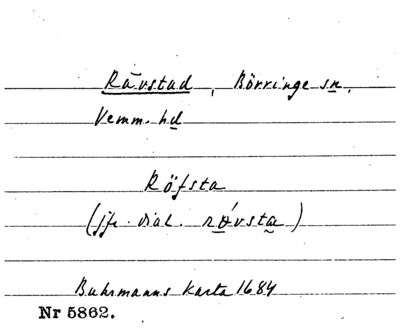 Råvstad, Börringe sn,
Vemm. hd
Röfsta
(jfr dial. rǿ̱vsta̰)
Buhrmanns karta 1684
Nr 5862.